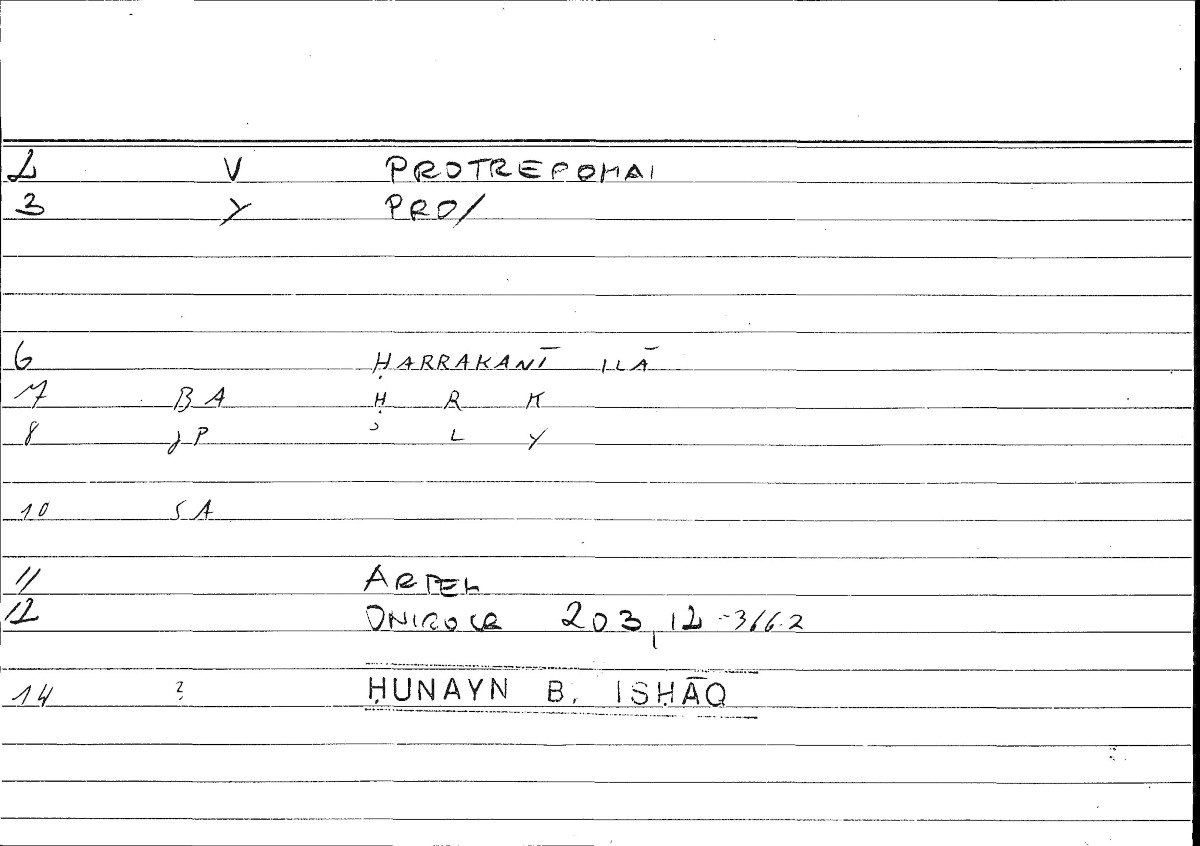 2 V PROTREPOMAI
3 Y PRO/
6 ḤARRAKANĪ ILĀ
7 BA Ḥ R K
8 JP ʾ L Y
10 SA
11 ARTEM
12 ONIROCR 203,12 -366.2
14 ? ḤUNAYN B. ISḤĀQ